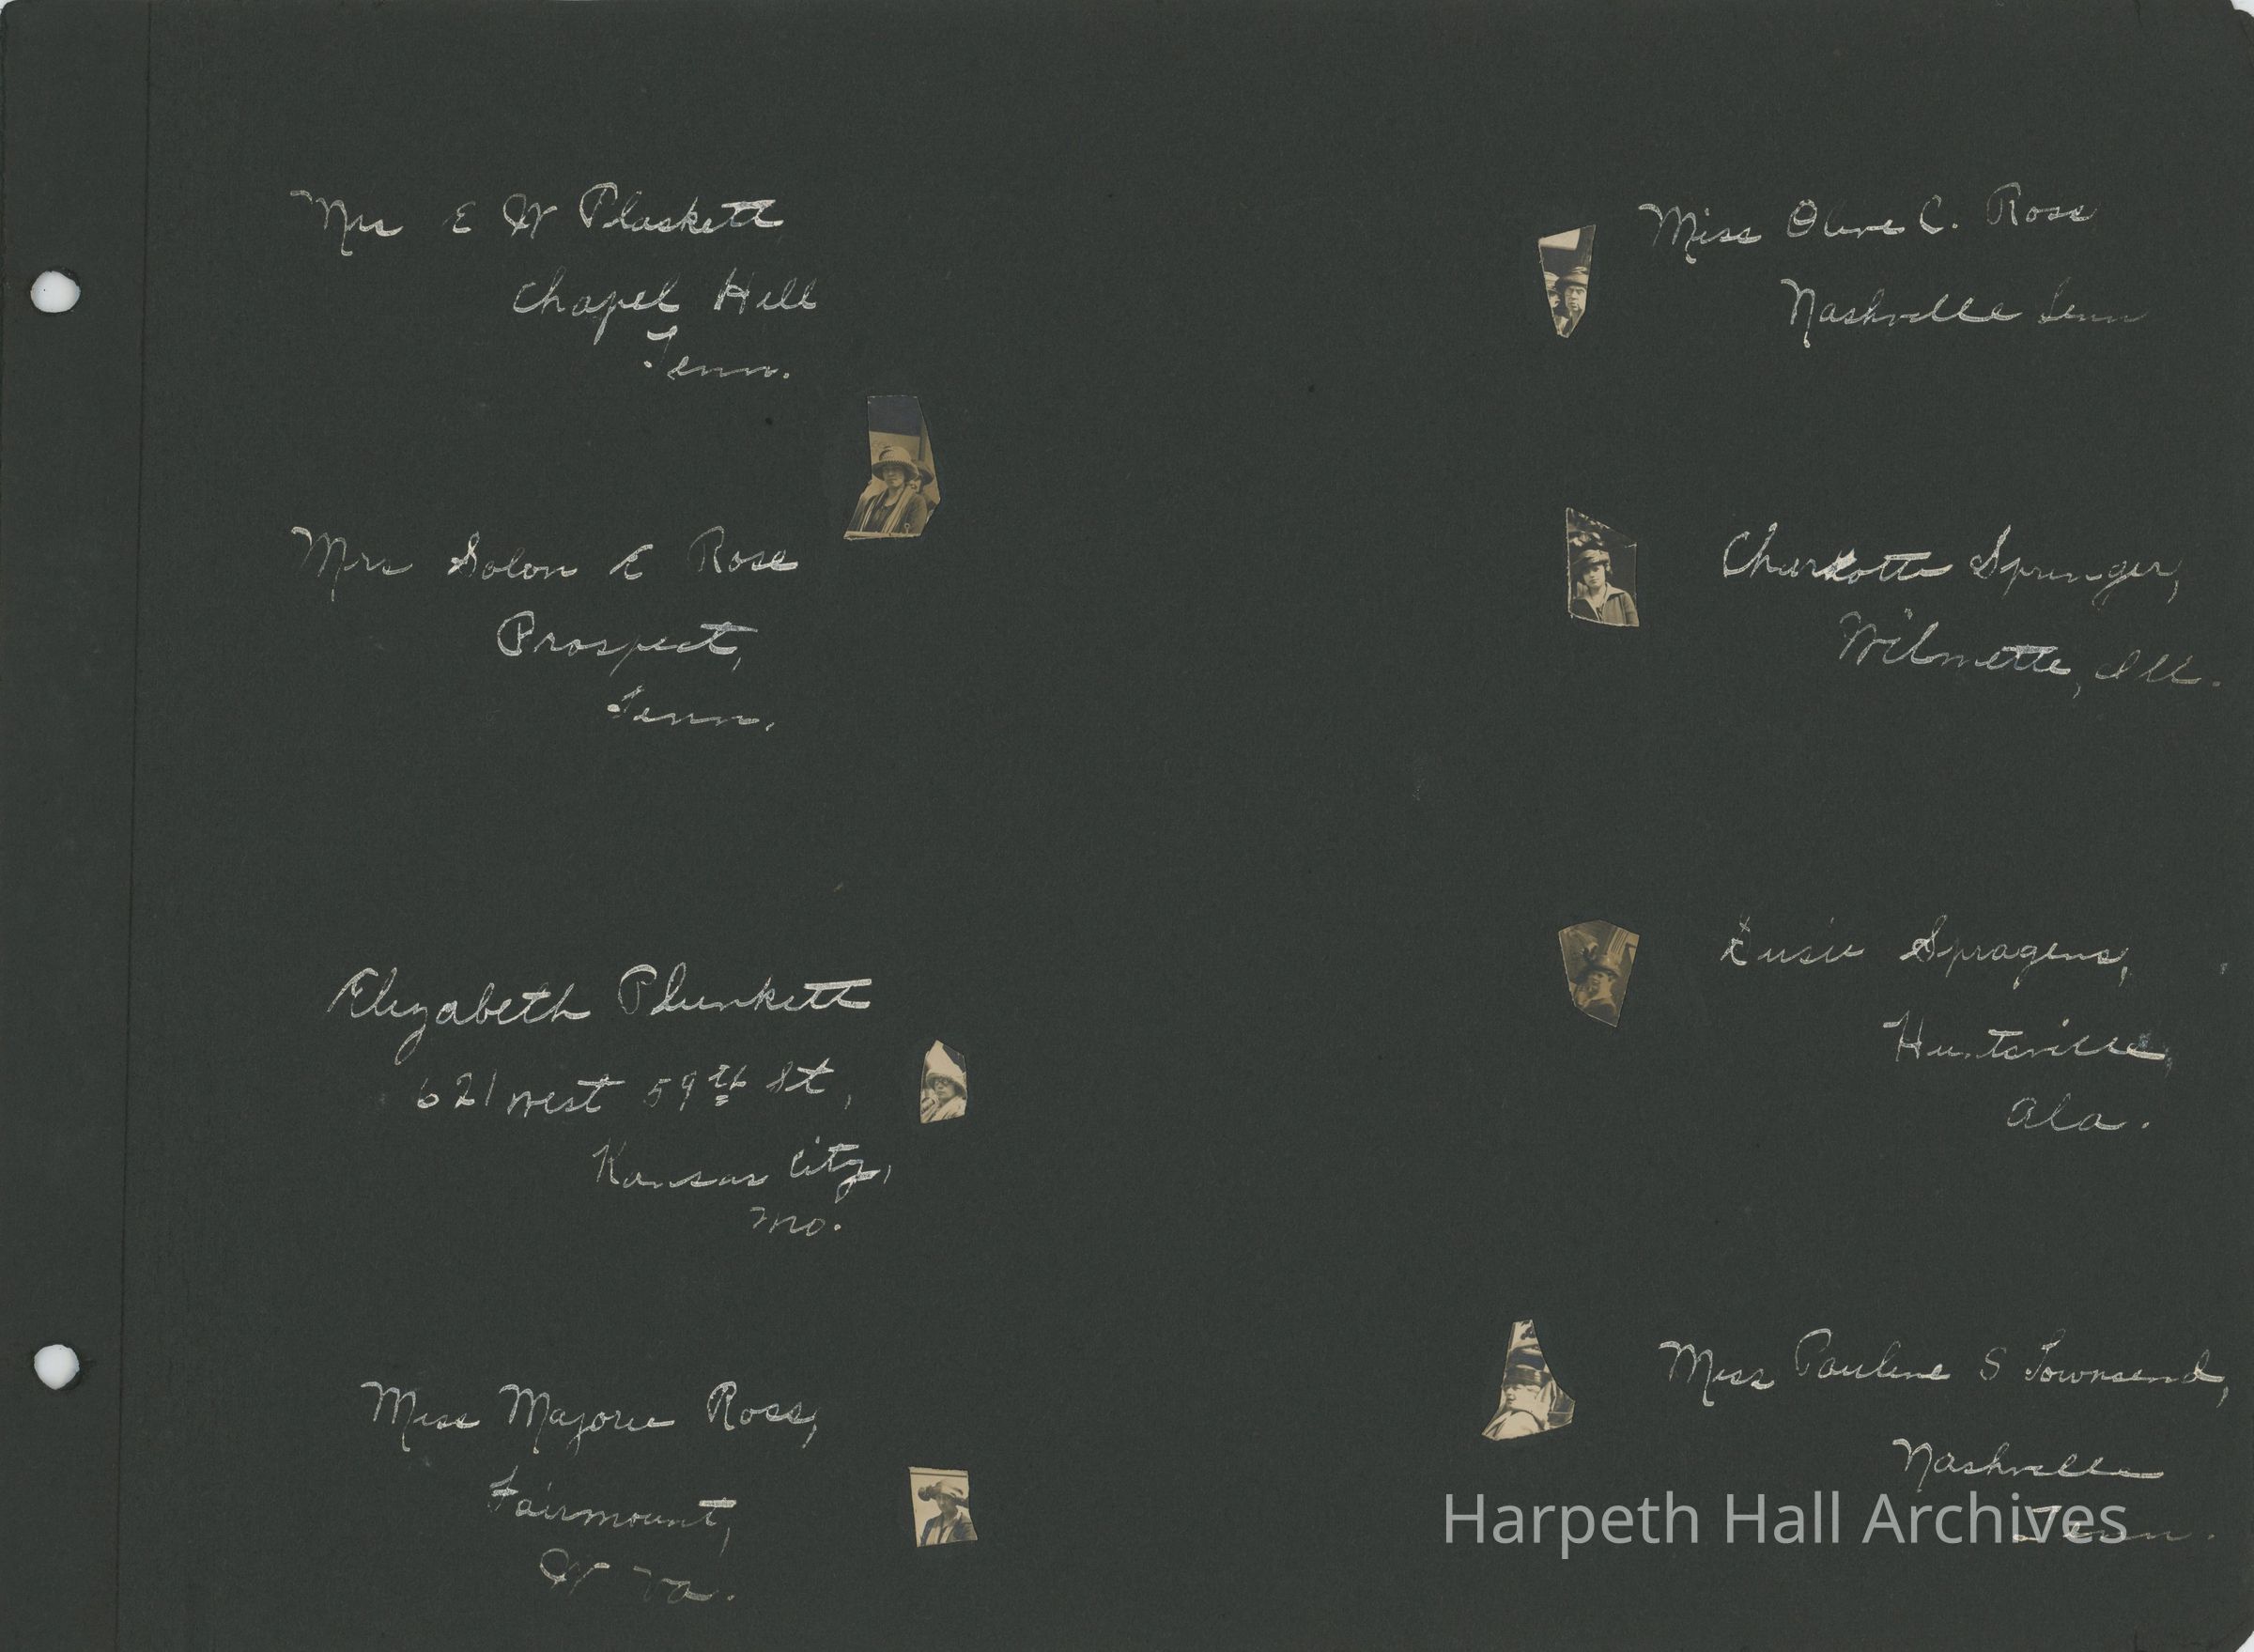 Mrs E W Plaskett
Chapel Hill
Tenn.
Mrs Solon E Rose
Prospect,
Tenn.
Elizabeth Plunkett
621 west 59th St,
Kansas City,
Mo.
Miss Majorie Ross,
Fairmount,
W Va.
Miss Olive C. Ross
Nashville Tenn
Charlotte Springer,
Wilmette, Ill.
Susie Spragens,
Huntsville,
Ala.
Miss Pauline S Townsend,
Nashville
Tenn.
Harpeth Hall Archives